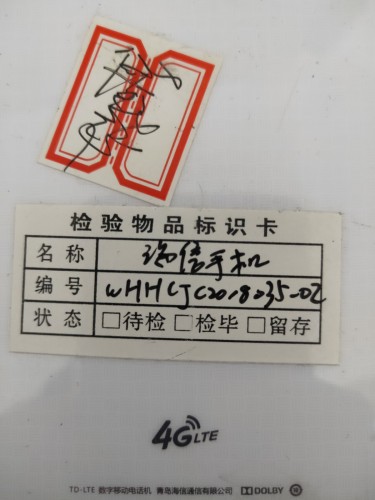 检验物品标识卡
名称 海信手机
编号 WHHCJC2018035-02
状态 □待检 □检毕 □留存
4G LTE
TD-LTE 数字移动电话机 青岛海信通信有限公司 DOLBY